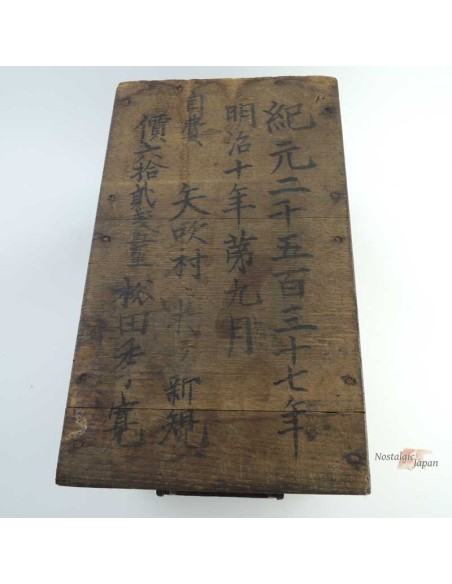 紀元二千五百三十七年
明治十年第九月
自費 矢吹村 新規
價六拾貳 松田 寛
Nostalgic Japan